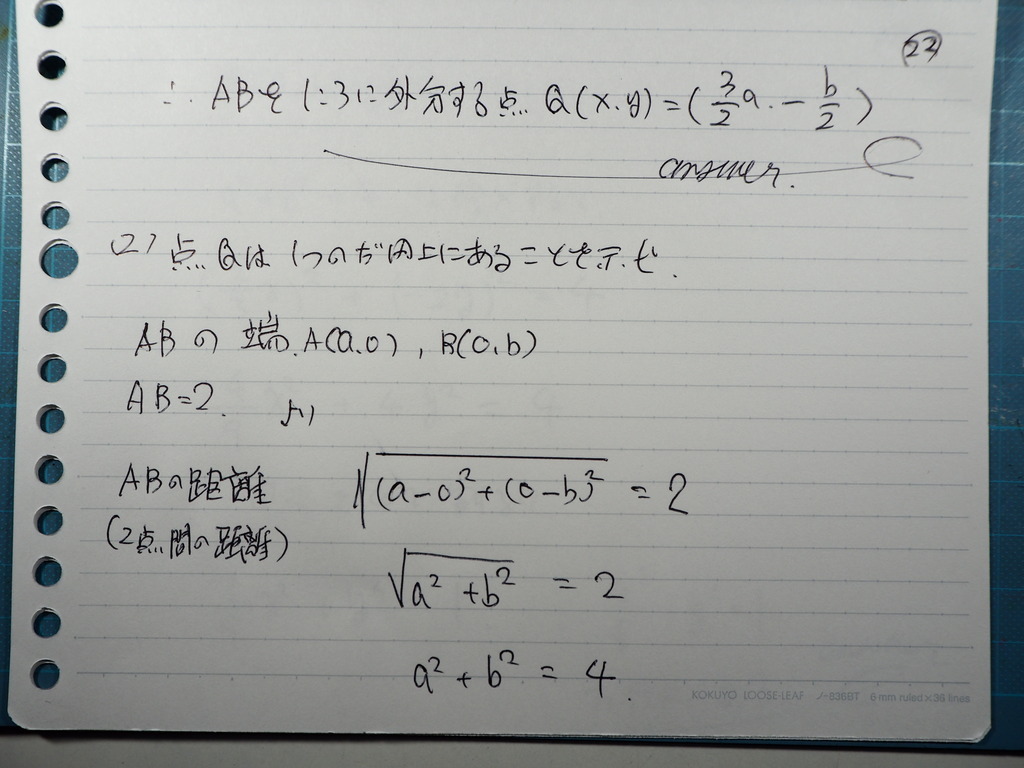 22
∴ ABを1:3に外分する点 Q(x.y)=(3/2 a. - b/2)
answer.
(2) 点Qは1つのだ円上にあることを示せ.
ABの端.A(a.0), B(0.b)
AB=2. より
ABの距離 √(a-0)²+(0-b)² = 2
(2点間の距離)
√a²+b² = 2
a²+b² = 4.
KOKUYO LOOSE-LEAF ノ-836BT 6 mm ruled×36 lines